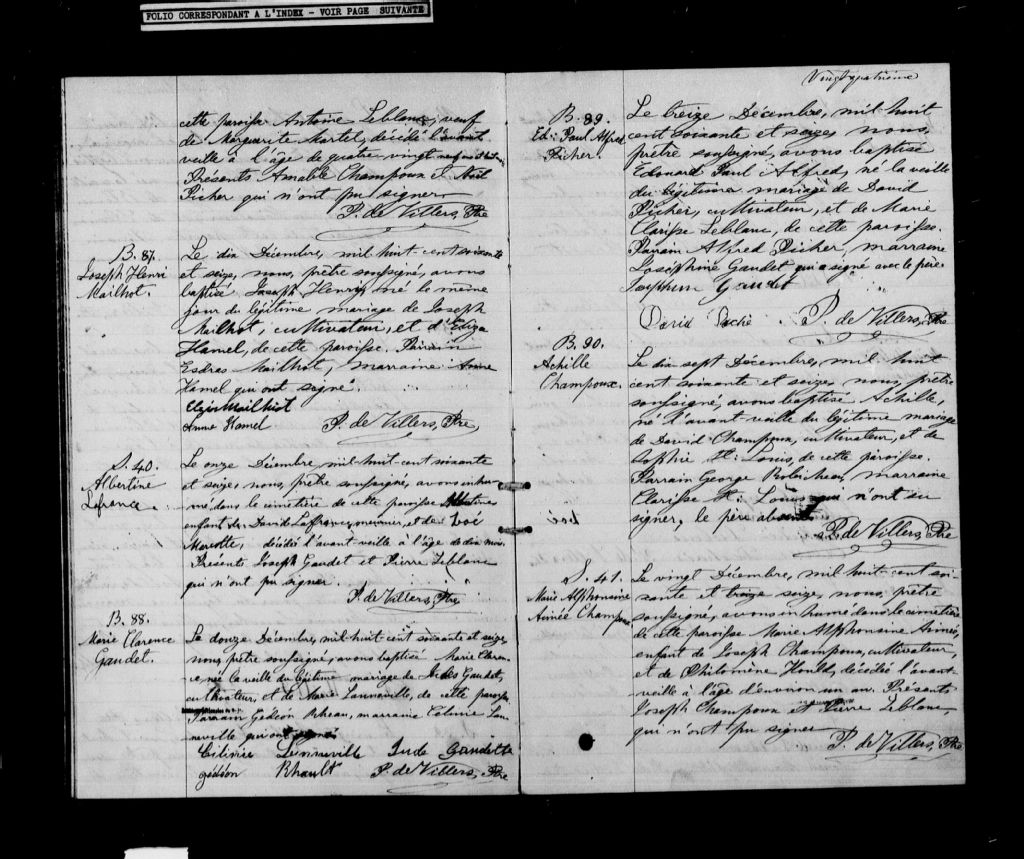 FOLIO CORRESPONDANT A L'INDEX - VOIR PAGE SUIVANTE
cette paroisse Antoine Leblanc, veuf
de Marguerite Martel, décédé l'avant
veille à l'âge de quatre-vingt neuf ans
Présents Amable Champoux et Noël
Picher qui n'ont pu signer
P. de Villers, Ptre
B. 87.
Joseph Henri
Mailhot.
Le dix Décembre, mil-huit-cent-soixante
et seize, nous, prêtre soussigné, avons
baptisé Joseph Henry, né le même
jour du légitime mariage de Joseph
Mailhot, cultivateur, et d'Eliza
Hamel, de cette paroisse. Parrain
Esdras Mailhot, marraine Anne
Hamel qui ont signé.
Mailhiot
Anne Hamel P. de Villers, Ptre
S. 40.
Albertine
Lafrance.
Le onze Décembre mil-huit-cent soixante
et seize, nous, prêtre soussigné, avons inhu-
mé dans le cimetière de cette paroisse Albertine
enfant de David Laffrance, meunier, et de Zoé
Marcotte, décédée l'avant-veille à l'âge de dix mois.
Présents Joseph Gaudet et Pierre Leblanc
qui n'ont pu signer.
P. de Villers, Ptre
B. 88.
Marie Clarence
Gaudet.
Le douze Décembre, mil-huit-cent soixante et seize,
nous, prêtre soussigné, avons baptisé Marie Claren-
ce, née la veille du légitime mariage de Gaudet,
cultivateur, et de Marie Lanneville, de cette paroisse.
Parrain Gédéon Rheau, marraine Célinie Lan-
neville qui ont signé
Cilinie Lenneville Jude Gaudette
gédéon Rhault P. de Villers, Ptre
Vingt-quatrième
B. 89.
Ed: Paul Alfred
Picher.
Le treize Décembre, mil huit
cent soixante et seize, nous,
prêtre soussigné, avons baptisé
Edouard Paul Alfred, né la veille
du légitime mariage de David
Picher, cultivateur, et de Marie
Clarisse Leblanc, de cette paroisse.
Parrain Alfred Picher, marraine
Joséphine Gaudet qui a signé avec le père
Josephine Gaudet
David Piché P. de Villers, Ptre
B. 90.
Achille
Champoux.
Le dix sept Décembre, mil huit
cent soixante et seize, nous, prêtre
soussigné, avons baptisé Achille,
né l'avant-veille du légitime mariage
de David Champoux, cultivateur, et de
Sophie St: Louis, de cette paroisse.
Parrain George Robicheau, marraine
Clarisse St: Louis qui n'ont su
signer, le père absent
P. de Villers, Ptre
S. 41.
Marie Alphonsine
Aimée Champoux
Le vingt Décembre, mil huit cent soi-
xante et treize seize, nous, prêtre
soussigné, avons inhumé dans le cimetière
de cette paroisse Marie Alphonsine Aimée,
enfant de Joseph Champoux, cultivateur,
et de Philomène Hould, décédée l'avant-
veille à l'âge d'environ un an. Présents
Joseph Champoux et Pierre Leblanc,
qui n'ont pu signer
P. de Villers, Ptre